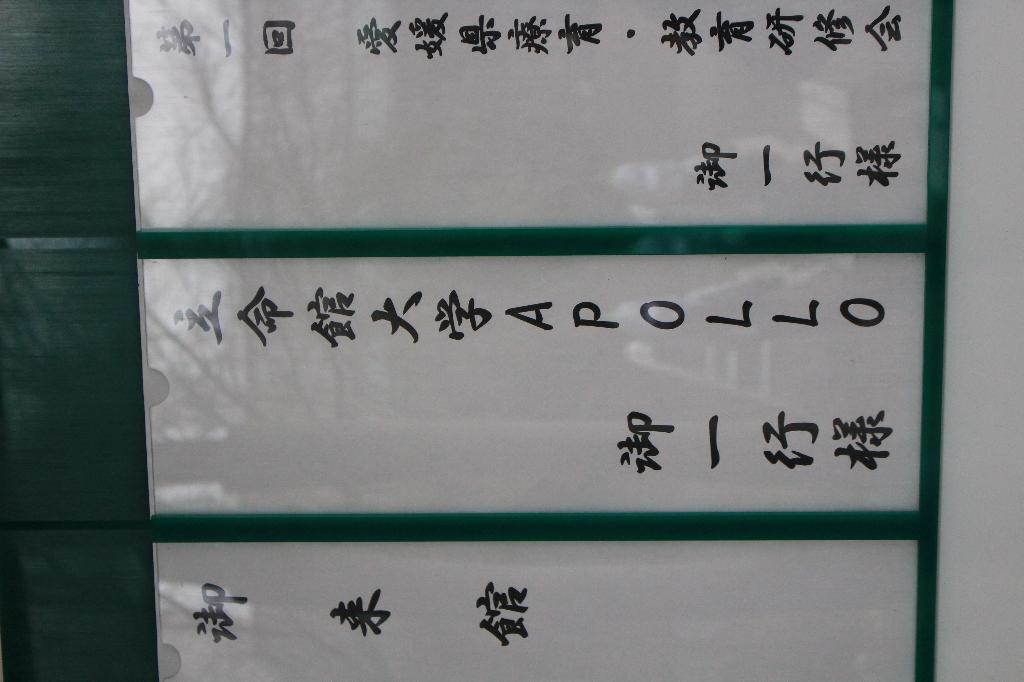 第一回 愛媛県療育・教育研修会
御一行様
立命館大学APOLLO
御一行様
御来館